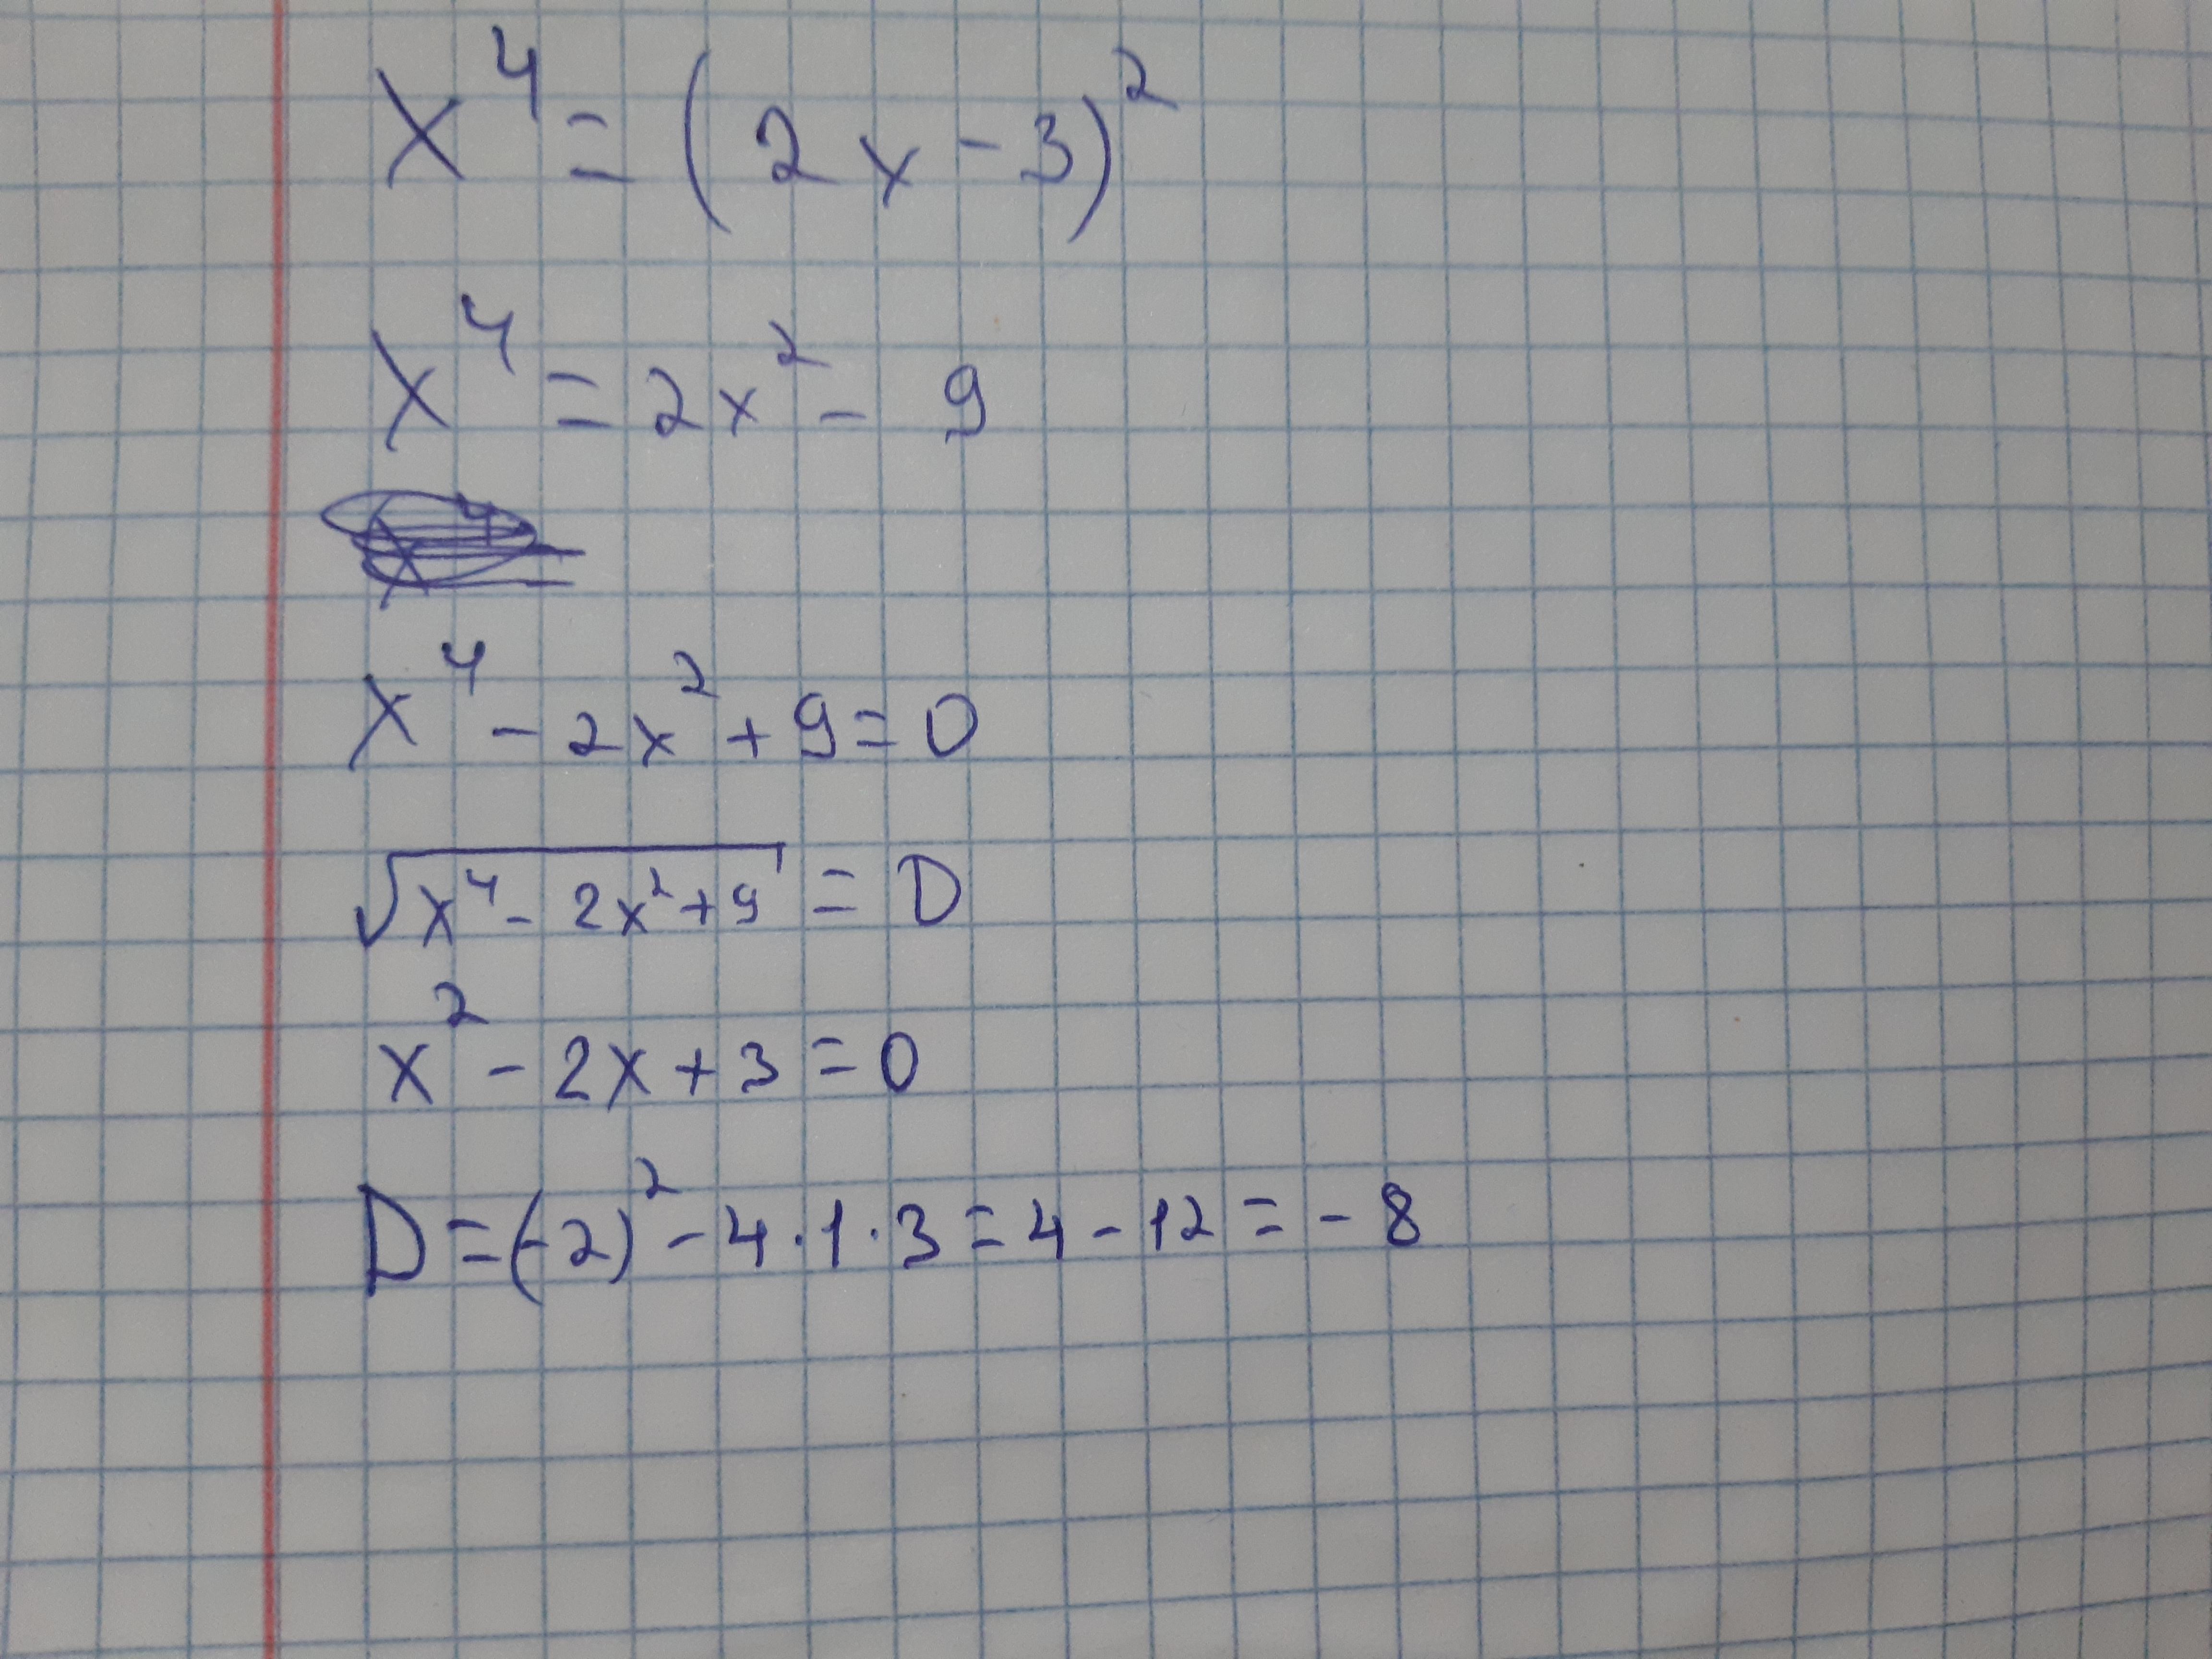 x⁴ = (2x - 3)²
x⁴ = 2x² - 9
x⁴ - 2x² + 9 = 0
√(x⁴ - 2x² + 9) = D
x² - 2x + 3 = 0
D = (-2)² - 4 · 1 · 3 = 4 - 12 = - 8